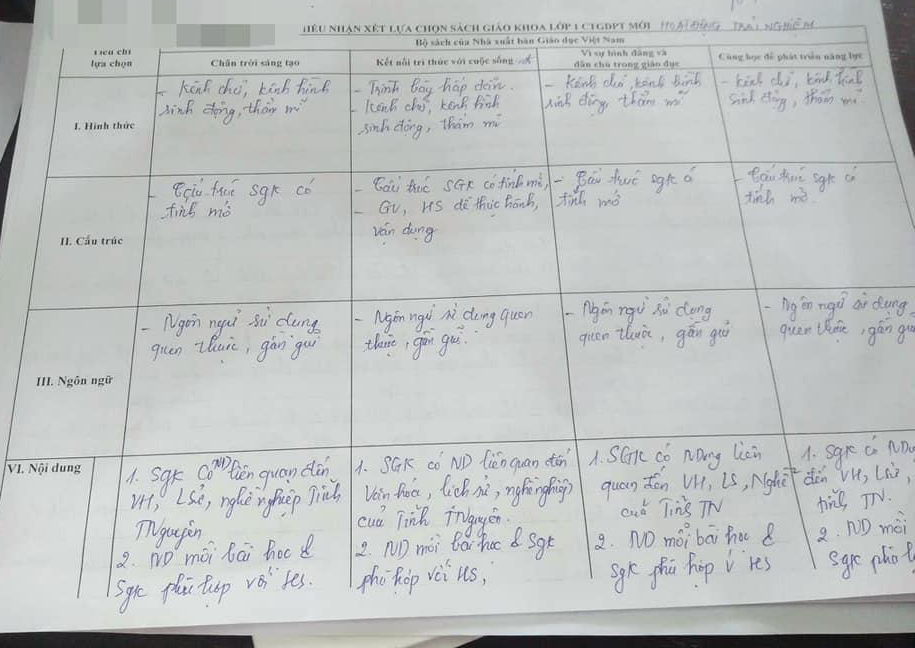 IẾU NHẬN XÉT LỰA CHỌN SÁCH GIÁO KHOA LỚP 1 CTGDPT MỚI HOẠT ĐỘNG TRẢI NGHIỆM
Tiêu chí lựa chọn
Bộ sách của Nhà xuất bản Giáo dục Việt Nam
Chân trời sáng tạo
Kết nối tri thức với cuộc sống
Vì sự bình đẳng và
dân chủ trong giáo dục
Cùng học để phát triển năng lực
I. Hình thức
- Kênh chữ, kênh hình
sinh động, thẩm mĩ
- Trình bày hấp dẫn.
- Kênh chữ, kênh hình
sinh động, thẩm mĩ
- Kênh chữ, kênh hình
sinh động, thẩm mĩ
- kênh chữ, kênh hình
sinh động, thẩm mĩ
II. Cấu trúc
- Cấu trúc sgk có
tính mở
- Cấu trúc SGK có tính mở,
- GV, HS dễ thực hành,
vận dụng
- Cấu trúc sgk có
tính mở
- Cấu trúc sgk có
tính mở.
III. Ngôn ngữ
- Ngôn ngữ sử dụng
quen thuộc, gần gũi
- Ngôn ngữ sử dụng quen
thuộc, gần gũi.
- Ngôn ngữ sử dụng
quen thuộc, gần gũi
- Ngôn ngữ sử dụng
quen thuộc, gần gũ
VI. Nội dung
1. Sgk có ND liên quan đến
VH, LSử, nghề nghiệp Tỉnh
TNguyên
2. ND mỗi bài học &
Sgk phù hợp với HS.
1. SGK có ND liên quan đến
Văn hóa, lịch sử, nghề nghiệp
của Tỉnh TNguyên.
2. ND mỗi bài học & Sgk
phù hợp với HS,
1. SGK có NDung liên
quan đến VH, LS, Nghề
của Tỉnh TN
2. ND mỗi bài học &
Sgk phù hợp v HS
1. Sgk có NDu
đến VH, LSử,
tỉnh TN.
2. ND mỗi
Sgk phù h